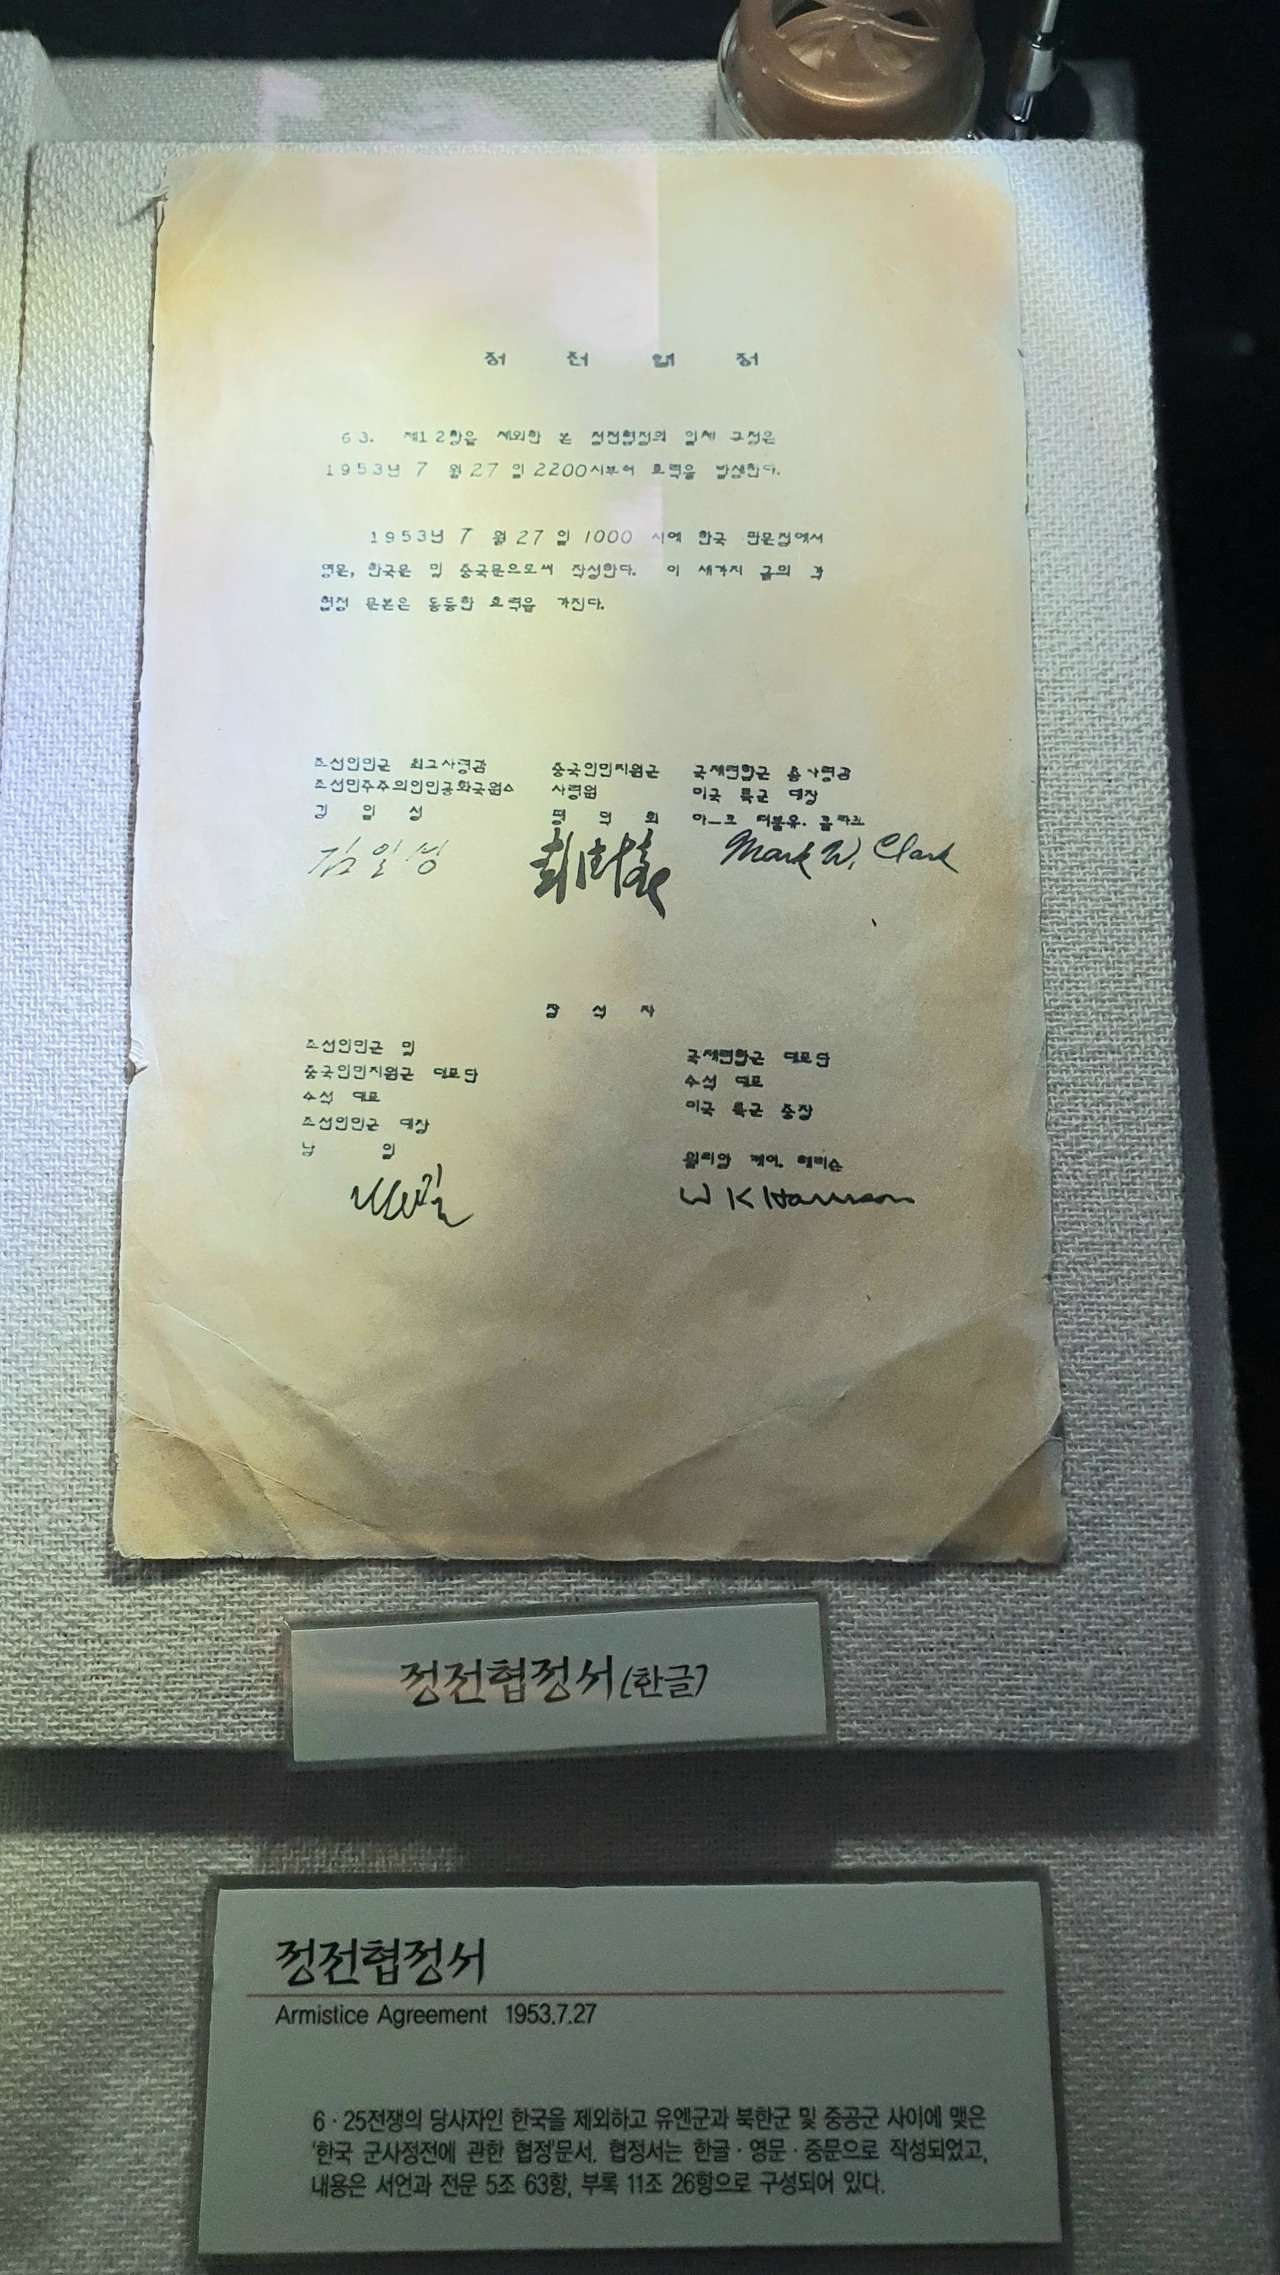 정 전 협 정
63. 제12항을 제외한 본 정전협정의 일체 규정은
1953년 7 월 27 일 2200시부터 효력을 발생한다.
1953년 7 월 27 일 1000 시에 한국 판문점에서
영문, 한국문 및 중국문으로써 작성한다. 이 세가지 글의 각
협정 문본은 동등한 효력을 가진다.
조선인민군 최고사령관
조선민주주의인민공화국원수
김 일 성
김일성
중국인민지원군
사령원
팽 덕 회
彭德懷
국제연합군 총사령관
미국 륙군 대장
마ー크 더블유. 클라크
Mark W. Clark
참 석 자
조선인민군 및
중국인민지원군 대표단
수석 대표
조선인민군 대장
남 일
남일
국제연합군 대표단
수석 대표
미국 륙군 중장
윌리암 케이. 해리슨
W K Harrison
정전협정서(한글)
정전협정서
Armistice Agreement 1953.7.27
6·25전쟁의 당사자인 한국을 제외하고 유엔군과 북한군 및 중공군 사이에 맺은
'한국 군사정전에 관한 협정'문서. 협정서는 한글·영문·중문으로 작성되었고,
내용은 서언과 전문 5조 63항, 부록 11조 26항으로 구성되어 있다.